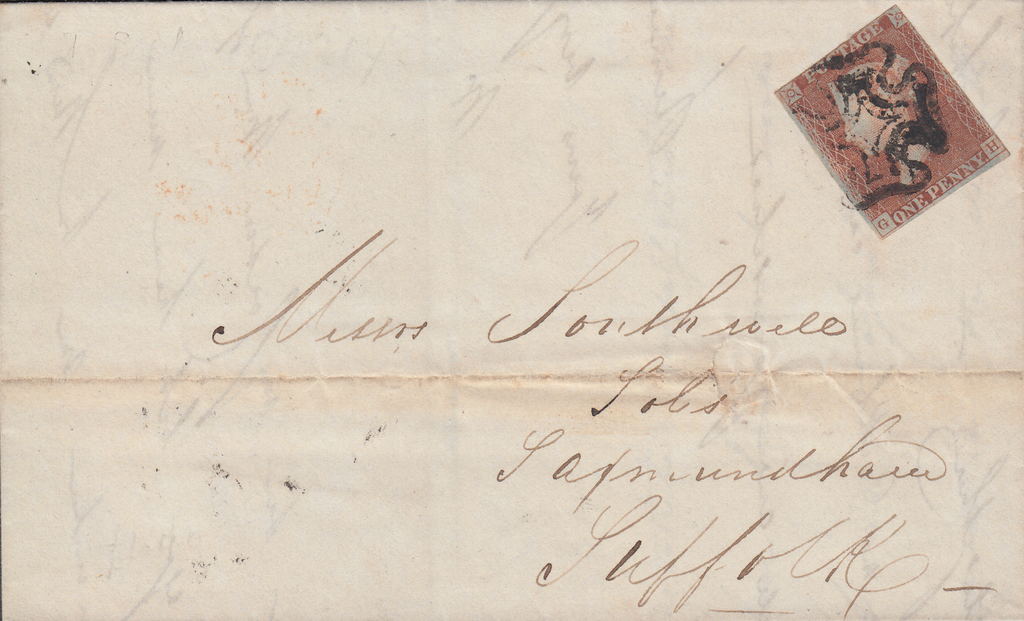 POSTAGE
G ONE PENNY H
Messrs Southwell
Sols
Saxmundham
Suffolk